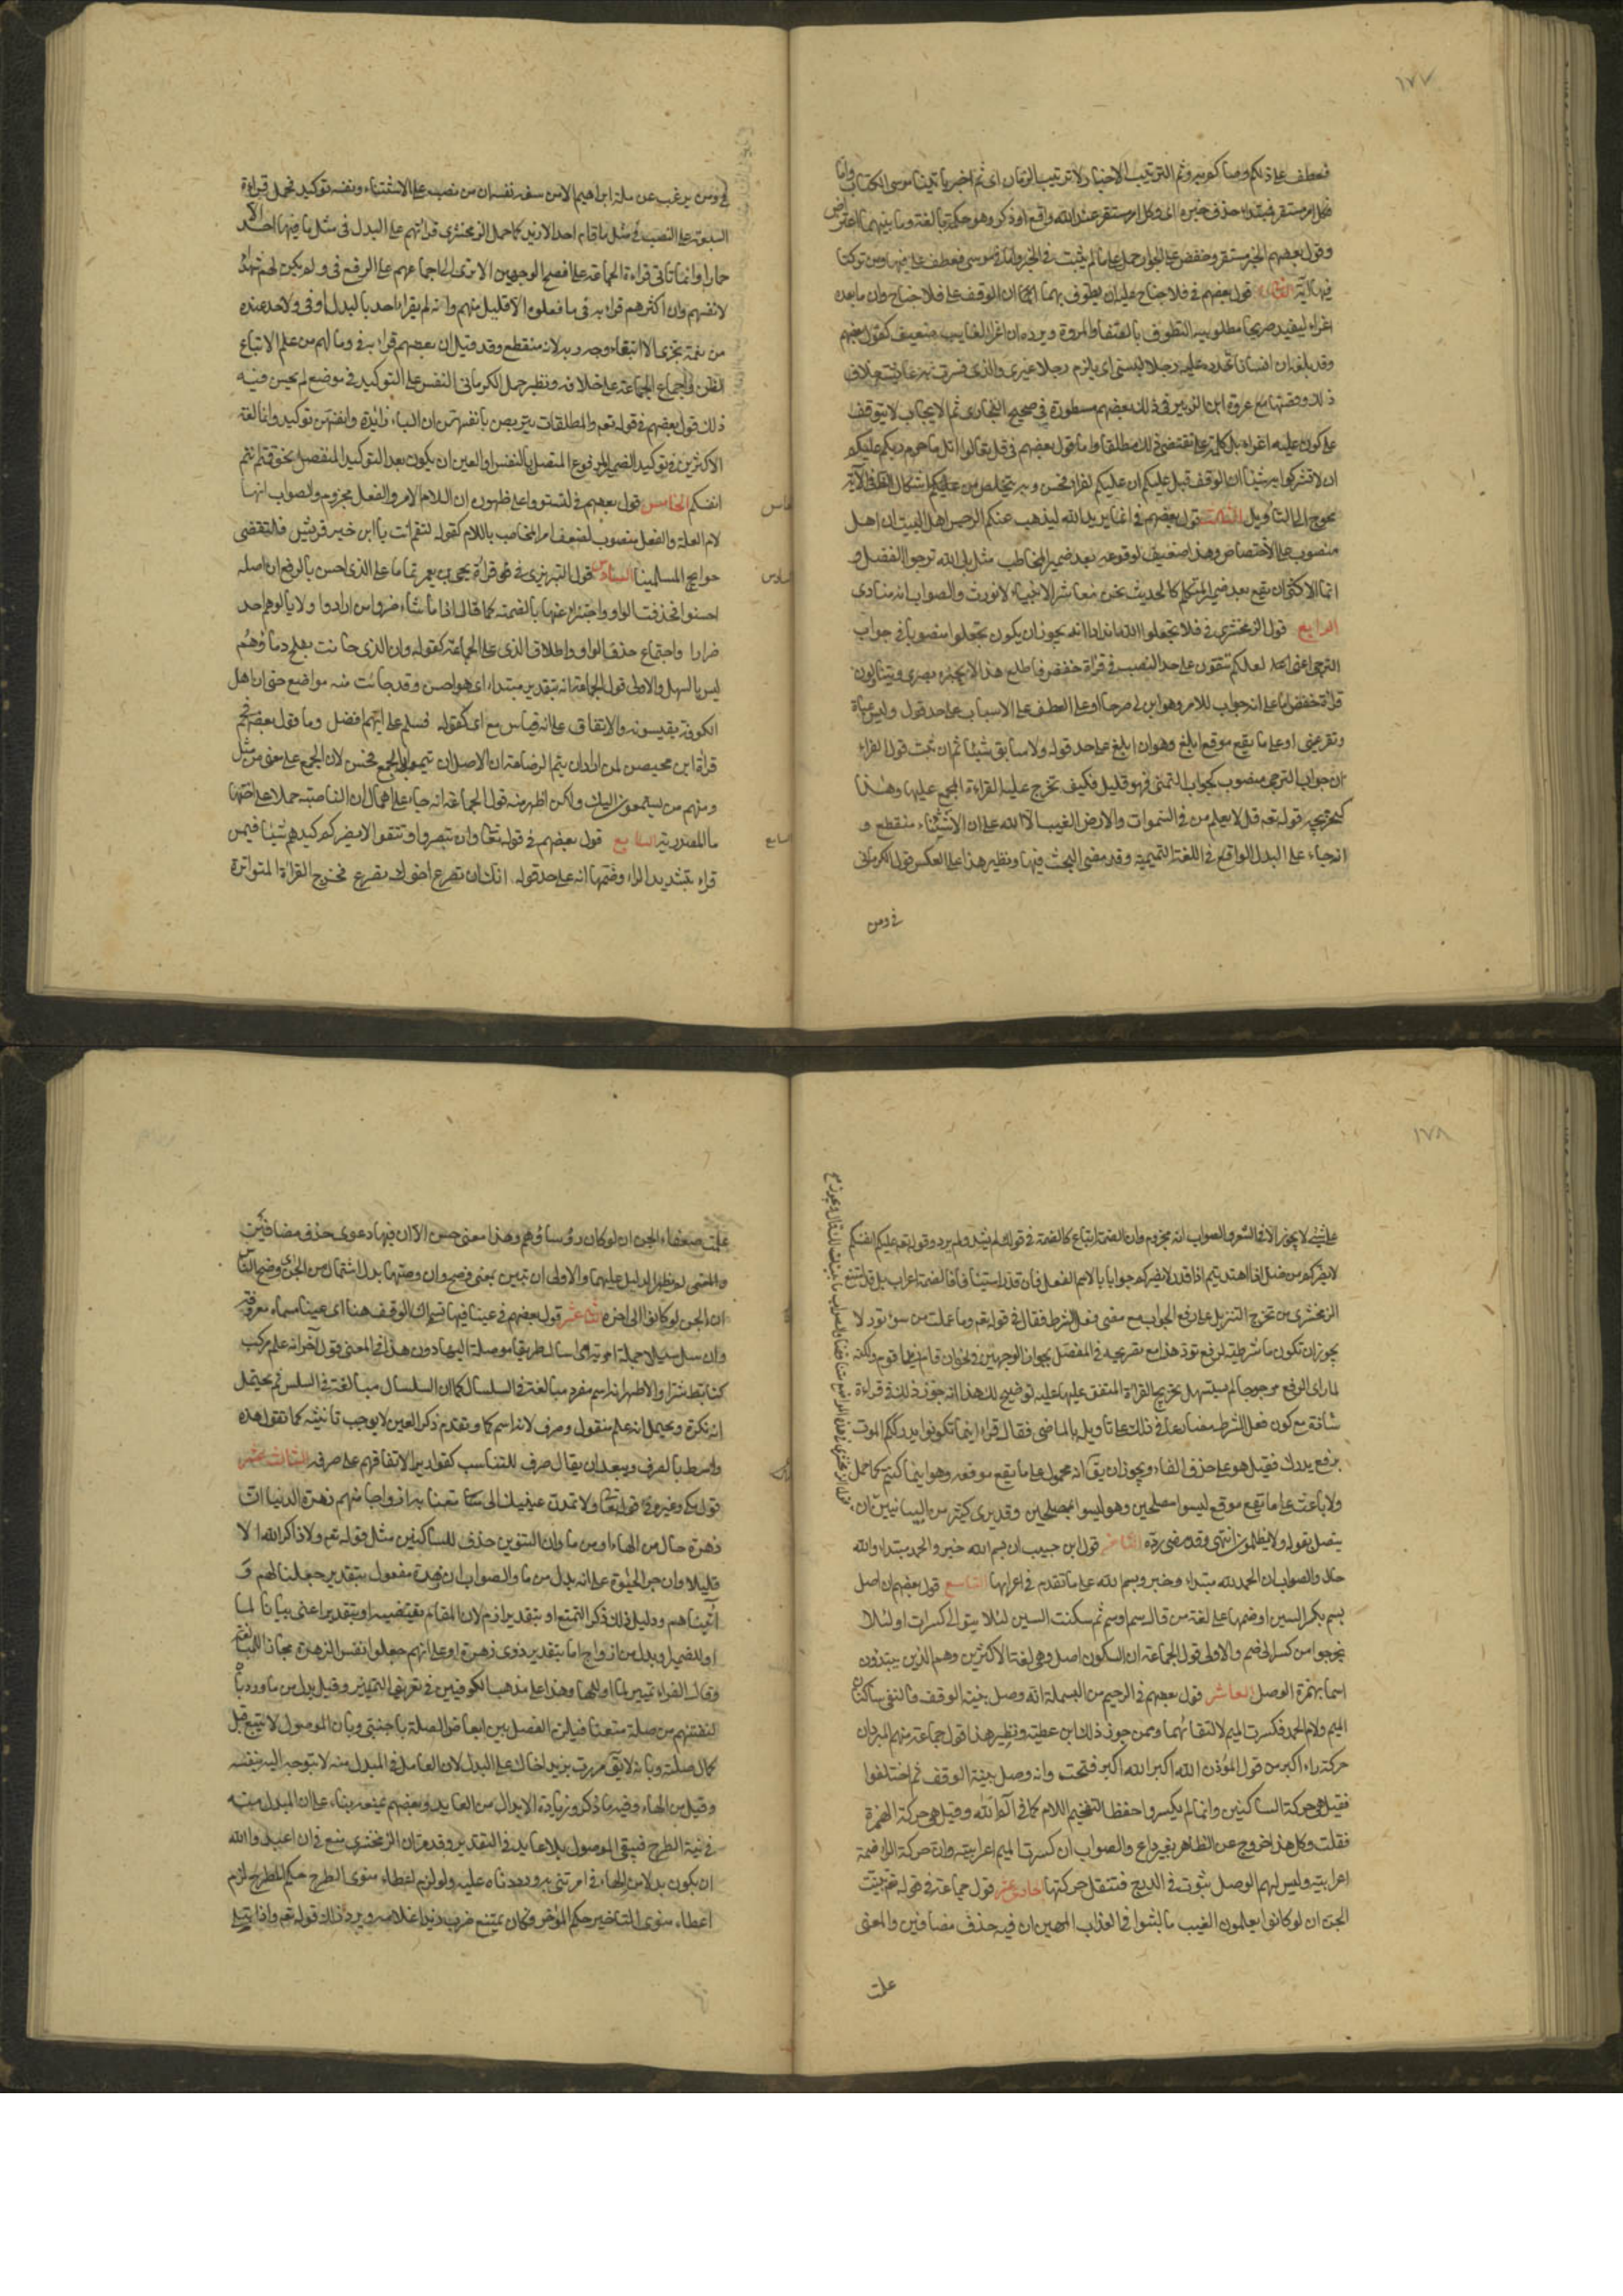 ١٧٧
فعطف على ذلكم وصاكم به وثم لترتيب الاخبار لا لترتيب الزمان اى ثم اخبركم باتينا موسى الكتاب واما
وكل امر مستقر فمبتداء حذف خبره اى وكل امر مستقر عند الله واقع او ذكر وهو حكمة بالغة وما بينهما اعتراض
وقول بعضهم الخبر مستقر وخفض على الجوار حمل على ما لم يثبت فى الخبر واما وفى موسى فعطف على فيها من وتركنا
فيها آية الثانى قول بعضهم فى فلا جناح عليه ان يطوف بهما ان الوقف على فلا جناح وان ما بعده
اغراء ليفيد صريحا مطلوبية التطوف بالصفا والمروة ويرده ان اغراء الغايب ضعيف كقول بعضهم
وقد بلغه ان انسانا يهدده عليه رجلا ليسنى اى يلزم رجلا غيرى والذى فسرت به عايشة خلاف
ذلك وقصتها مع عروة ابن الزبير فى ذلك مسطورة فى صحيح البخارى ثم الايجاب لا يتوقف
على كون عليه اغراء بل كلمة على تقتضى ذلك مطلقا واما قول بعضهم فى قل تعالوا اتل ما حرم ربكم عليكم
ان لا تشركوا به شيئا ان الوقف قبل عليكم ان عليكم اغراء فحسن وبه يتخلص من اشكال ظاهر فى الآية
محوج الى التأويل الثالث قول بعضهم فى انما يريد الله ليذهب عنكم الرجس اهل البيت ان اهل
منصوب على الاختصاص وهذا ضعيف لوقوعه بعد ضمير المخاطب مثل بك الله نرجوا الفضل و
انما الاكثر ان يقع بعد ضمير المتكلم كالحديث نحن معاشر الانبياء لا نورث والصواب انه منادى
الرابع قول الزمخشرى فى فلا تجعلوا لله اندادا انه يجوز ان يكون تجعلوا منصوبا فى جواب
الترجى اعنى لعلكم تتقون على حد النصب فى قراءة حفص فاطلع وهذا لا يجيزه بصرى ويتأولون
قراءة حفص اما على انه جواب للامر وهو ابن لى صرحا او على العطف على الاسباب على حد قول ولبس عباءة
وتقر عينى او على ما يقع موقع ابلغ وهو ان ابلغ على حد قوله ولا سابق شيئا ثم ان ثبت قول الفراء
ان جواب الترجى منصوب كجواب التمنى فهو قليل فكيف تخرج عليه القراءة المجمع عليها وهذا
كتخريجه قوله تعه قل لا يعلم من فى السموات والارض الغيب الا الله على ان الاستثناء منقطع و
انه جاء على البدل الواقع فى اللغة التميمية وقد مضى البحث فيها ونظير هذا على العكس قول الكرمانى
فى ومن
فى ومن يرغب عن ملة ابراهيم الا من سفه نفسه ان من نصب على الاستثناء ونفسه توكيد فحمل قراءة
السبعة على النصب فى مثل ما قام احد الا زيد كما حمل الزمخشرى قراءتهم على البدل فى مثل ما فيها احد الا
حمار وانما تاتى قراءة الجماعة على افصح الوجهين الا ترى الى اجماعهم على الرفع فى ولم يكن لهم شهداء
الا انفسهم وان اكثرهم قراء به فى ما فعلوه الا قليل منهم وانه لم يقراء احد بالبدل فى وما لاحد عنده
من نعمة تجزى الا ابتغاء وجه ربه لانه منقطع وقد قيل ان بعضهم قراء به فى وما لهم به من علم الا اتباع
الظن واجماع الجماعة على خلافه ونظير حمل الكرمانى النفس على التوكيد فى موضع لم يحسن فيه
ذلك قول بعضهم فى قوله تعه والمطلقات يتربصن بانفسهن ان الباء زائدة وانفسهن توكيد وانما لغة
الاكثرين فى توكيد الضمير المرفوع المتصل بالنفس او العين ان يكون بعد التوكيد المنفصل نحو قمتم انتم
انفسكم الخامس قول بعضهم فى لتستووا على ظهوره ان اللام للامر والفعل مجزوم والصواب انها
لام العلة والفعل منصوب لضعف امر المخاطب باللام كقوله لتقم انت يا ابن خير قريش فلتقضى
حوايج المسلمينا السادس قول التبريزى فى قراءة يحيى بن يعمر تماما على الذى احسن بالرفع ان اصله
احسنوا فحذفت الواو واجتزاء عنها بالضمة كما قال اذا ما شاء ضروا من ارادوا ولا يالوهم احد
ضرارا واجتماع حذف الواو واطلاق الذى على الجماعة كقوله وان الذى حانت بفلج دماؤهم
ليس بالسهل والاولى قول الجماعة انه بتقدير مبتداء اى هو احسن وقد جائت منه مواضع حتى ان اهل
الكوفة يقيسونه والاتفاق على انه قياس مع اى كقوله فسلم على ايهم افضل وما قول بعضهم فى
قراءة ابن محيصن لمن اراد ان يتم الرضاعة ان الاصل ان يتموا بالجمع فحسن لان الجمع على معنى من مثل
ومنهم من يستمعون اليك ولكن اظهر منه قول الجماعة انه جاء على اهمال ان الناصبة حملا على اختها
ما المصدرية السابع قول بعضهم فى قوله تعه وان تصبروا وتتقوا لا يضركم كيدهم شيئا فيمن
قراء بتشديد الراء وضمها انه على حد قوله انك ان يصرع اخوك تصرع فخرج القراءة المتواترة
خامس
سادس
سابع
١٧٨
على شىء لا يجوز الا فى الشعر والصواب انه مجزوم وان الضمة اتباع كالضمة فى قولك لم يشد ولم يرد وقوله تعه عليكم انفسكم
لا يضركم من ضل اذا اهتديتم اذا قدر لا يضركم جوابا بالاسم الفعل فان قدر استينافا فالضمة اعراب بل قد امتنع
الزمخشرى من تخريج التنزيل على رفع الجواب مع مضى فعل الشرط فقال فى قوله تعه وما عملت من سوء تود لا
يجوز ان تكون ما شرطية لرفع تود هذا مع تصريحه فى المفصل بجواز الوجهين فى نحو ان قام زيد اقوم ولكنه
لما راى الرفع مرجوحا لم يستسهل تخريج القراءة المتفق عليها عليه يوضح لك هذا انه جوز ذلك فى قراءة
شاذة مع كون فعل الشرط مضارعا وذلك على تاويله بالماضى فقال قراء اينما تكونوا يدرككم الموت
برفع يدرك فقيل هو على حذف الفاء ويجوز ان يق انه محمول على ما يقع موقعه وهو اينما كنتم كما حمل
ولا ناعب على ما يقع موقع ليسوا مصلحين وهو ليسوا بمصلحين وقد يرى كثير من البيانيين ان
يتصل بقوله ولا يظلمون انتهى وقد مضى رده الثامن قول ابن حبيب ان بسم الله خبر والحمد مبتداء ولله
حال والصواب ان الحمد لله مبتداء وخبر وبسم الله على ما تقدم فى اعرابها التاسع قول بعضهم ان اصل
بسم بكسر السين او ضمها على لغة من قال سم او سم ثم سكنت السين لئلا يتوالى كسرات او لئلا
يخرجوا من كسر الى ضم والاولى قول الجماعة ان السكون اصل وهى لغة الاكثرين وهم الذين يبتدئون
اسما بهمزة الوصل العاشر قول بعضهم فى الرحيم من البسملة انه وصل بنية الوقف فالتقى ساكنان
الميم ولام الحمد فكسرت الميم لالتقائهما وممن جوز ذلك ابن عطية ونظير هذا قول جماعة منهم المبرد ان
حركة راء اكبر من قول المؤذن الله اكبر الله اكبر فتحة وانه وصل بنية الوقف ثم اختلفوا
فقيل هى حركة الساكنين وانما لم يكسروا حفظا لتفخيم اللام كما فى الم الله وقيل هى حركة الهمزة
نقلت وكل هذا خروج عن الظاهر بغير داع والصواب ان كسرة الميم اعرابية وان حركة الراء ضمة
اعرابية وليس لهمزة الوصل ثبوت فى الدرج فتنقل حركتها حادى عشر قول جماعة فى قوله تعه تبينت
الجن ان لو كانوا يعلمون الغيب ما لبثوا فى العذاب المهين ان فيه حذف مضافين والمعنى
علمت
علمت ضعفاء الجن ان لو كان رؤساؤهم وهذا معنى حسن الا ان فيها دعوى حذف مضافين
والاولى ان تبين بمعنى وضح وان وصلتها بدل اشتمال من الجن اى وضح للناس
ان الجن لو كانوا الى اخره ثانى عشر قول بعضهم فى عينا فيها تسمى ان الوقف هنا اى عينا مسماة معروفة
وان سل سبيلا جملة امرية اى اسال طريقا موصلة اليها ودون هذا فى المعنى قول آخر انه علم مركب
كتابط شرا والاظهر انه اسم مفرد مبالغة فى السلسال كما ان السلسال مبالغة فى السلس ثم يحتمل
انه نكرة ويحتمل انه علم منقول وصرف لانه اسم ماء وتقدم ذكر العين لا يوجب تانيثه كما تقول هذه
واسط بالصرف ويبعد ان يقال صرف للتناسب كقواريرا لاتفاقهم على صرفه الثالث عشر
قول مكى وغيره فى قوله تعه ولا تمدن عينيك الى ما متعنا به ازواجا منهم زهرة الدنيا ان
زهرة حال من الهاء او من ما وان التنوين حذف للساكنين مثل قوله تعه ولا ذاكر الله الا
قليلا وان جر الحيوة على انه بدل من ما والصواب ان زهرة مفعول بتقدير جعلنا لهم و
آتيناهم ودليل ذلك ذكر التمتع او بتقدير اذم لان المقام يقتضيه او بتقدير اعنى بيانا لما
او للضمير او بدل من ازواج اما بتقدير ذوى زهرة او على انهم جعلوا نفس الزهرة مجازا للمبالغة
وقال الفراء تمييز لما او للهاء وهذا على مذهب الكوفيين فى تعريف التمييز وقيل بدل من ما ورد بان
لنفتنهم من صلة متعنا فيلزم الفصل بين ابعاض الصلة باجنبى وبان الموصول لا يتبع قبل
كمال صلته وبانه لا يق مررت بزيد اخاك على البدل لان العامل فى المبدل منه لا يتوجه اليه بنفسه
وقيل من الهاء وفيه ما ذكر وزيادة الابدال من العايد وبعضهم يمنعه بناء على ان المبدل منه
فى نية الطرح فيبقى الموصول بلا عايد فى التقدير وقد مر ان الزمخشرى منع فى ان اعبدوا الله
ان يكون بدلا من الهاء فى امرتنى به ورددناه عليه ولو لزم اعطاء منوى الطرح حكم المطروح لزم
اعطاء منوى التاخير حكم المؤخر فكان يمتنع ضرب زيدا غلامه ويرد ذلك قوله تعه واذا ابتلى